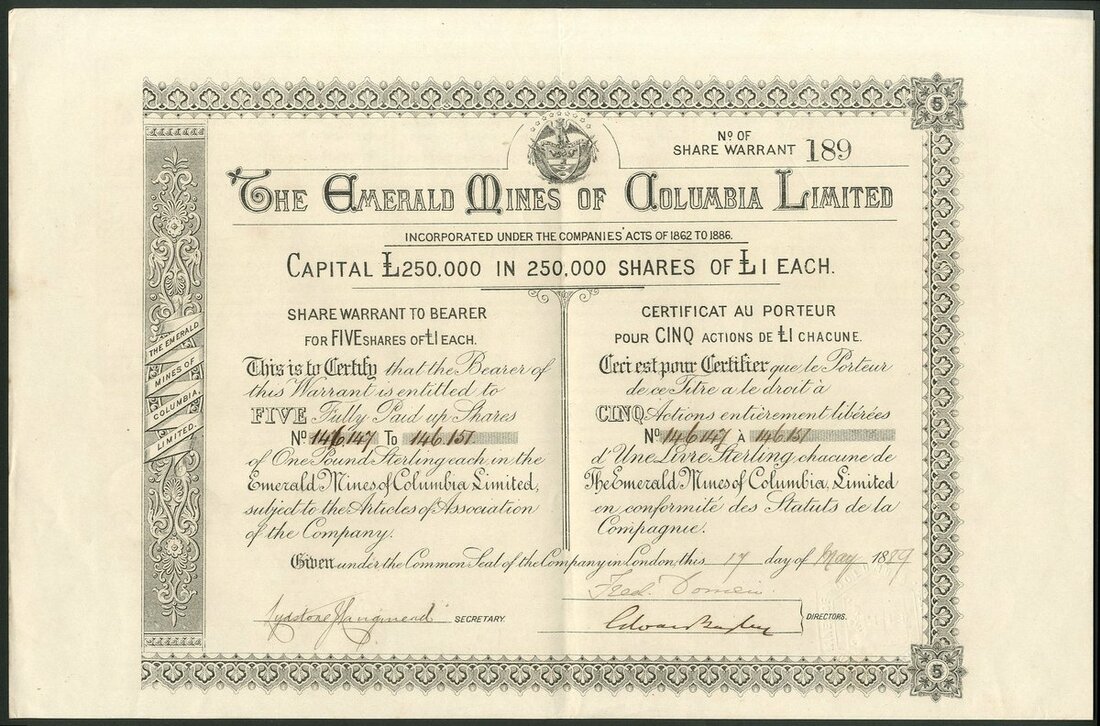 5
Nº OF
SHARE WARRANT 189
THE EMERALD MINES OF COLUMBIA LIMITED
INCORPORATED UNDER THE COMPANIES' ACTS OF 1862 TO 1886.
CAPITAL £250.000 IN 250,000 SHARES OF £1 EACH.
SHARE WARRANT TO BEARER
FOR FIVE SHARES OF £1 EACH.
This is to Certify that the Bearer of
this Warrant is entitled to
FIVE Fully Paid up Shares
Nº 146147 TO 146151
of One Pound Sterling each in the
Emerald Mines of Columbia Limited,
subject to the Articles of Association
of the Company.
CERTIFICAT AU PORTEUR
POUR CINQ ACTIONS DE £1 CHACUNE.
Ceci est pour Certifier que le Porteur
de ce Titre a le droit à
CINQ Actions entièrement libérées
Nº 146147 À 146151
d'Une Livre Sterling, chacune de
The Emerald Mines of Columbia, Limited
en conformité des Statuts de la
Compagnie.
THE EMERALD
MINES OF
COLUMBIA,
LIMITED.
Given under the Common Seal of the Company in London, this 17 day of May 1889
Fred.
SECRETARY.
DIRECTORS.
5